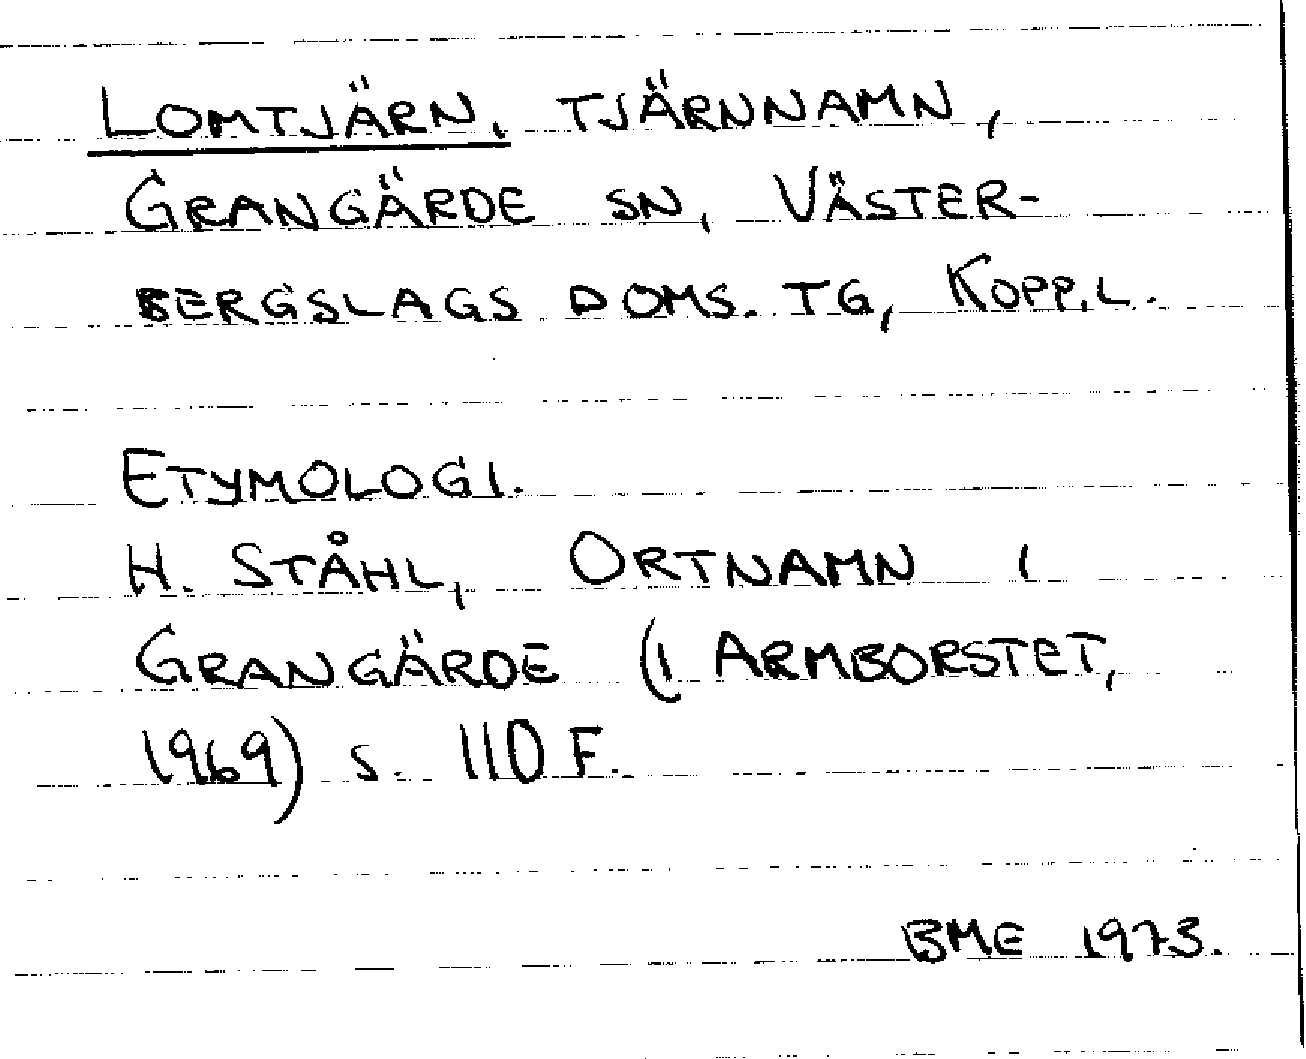 LOMTJÄRN, TJÄRNNAMN,
GRANGÄRDE SN, VÄSTER-
BERGSLAGS DOMS. TG, KOPP.L.
ETYMOLOGI.
H. STÅHL, ORTNAMN I
GRANGÄRDE (I ARMBORSTET,
1969) S. 110 F.
BME 1973.